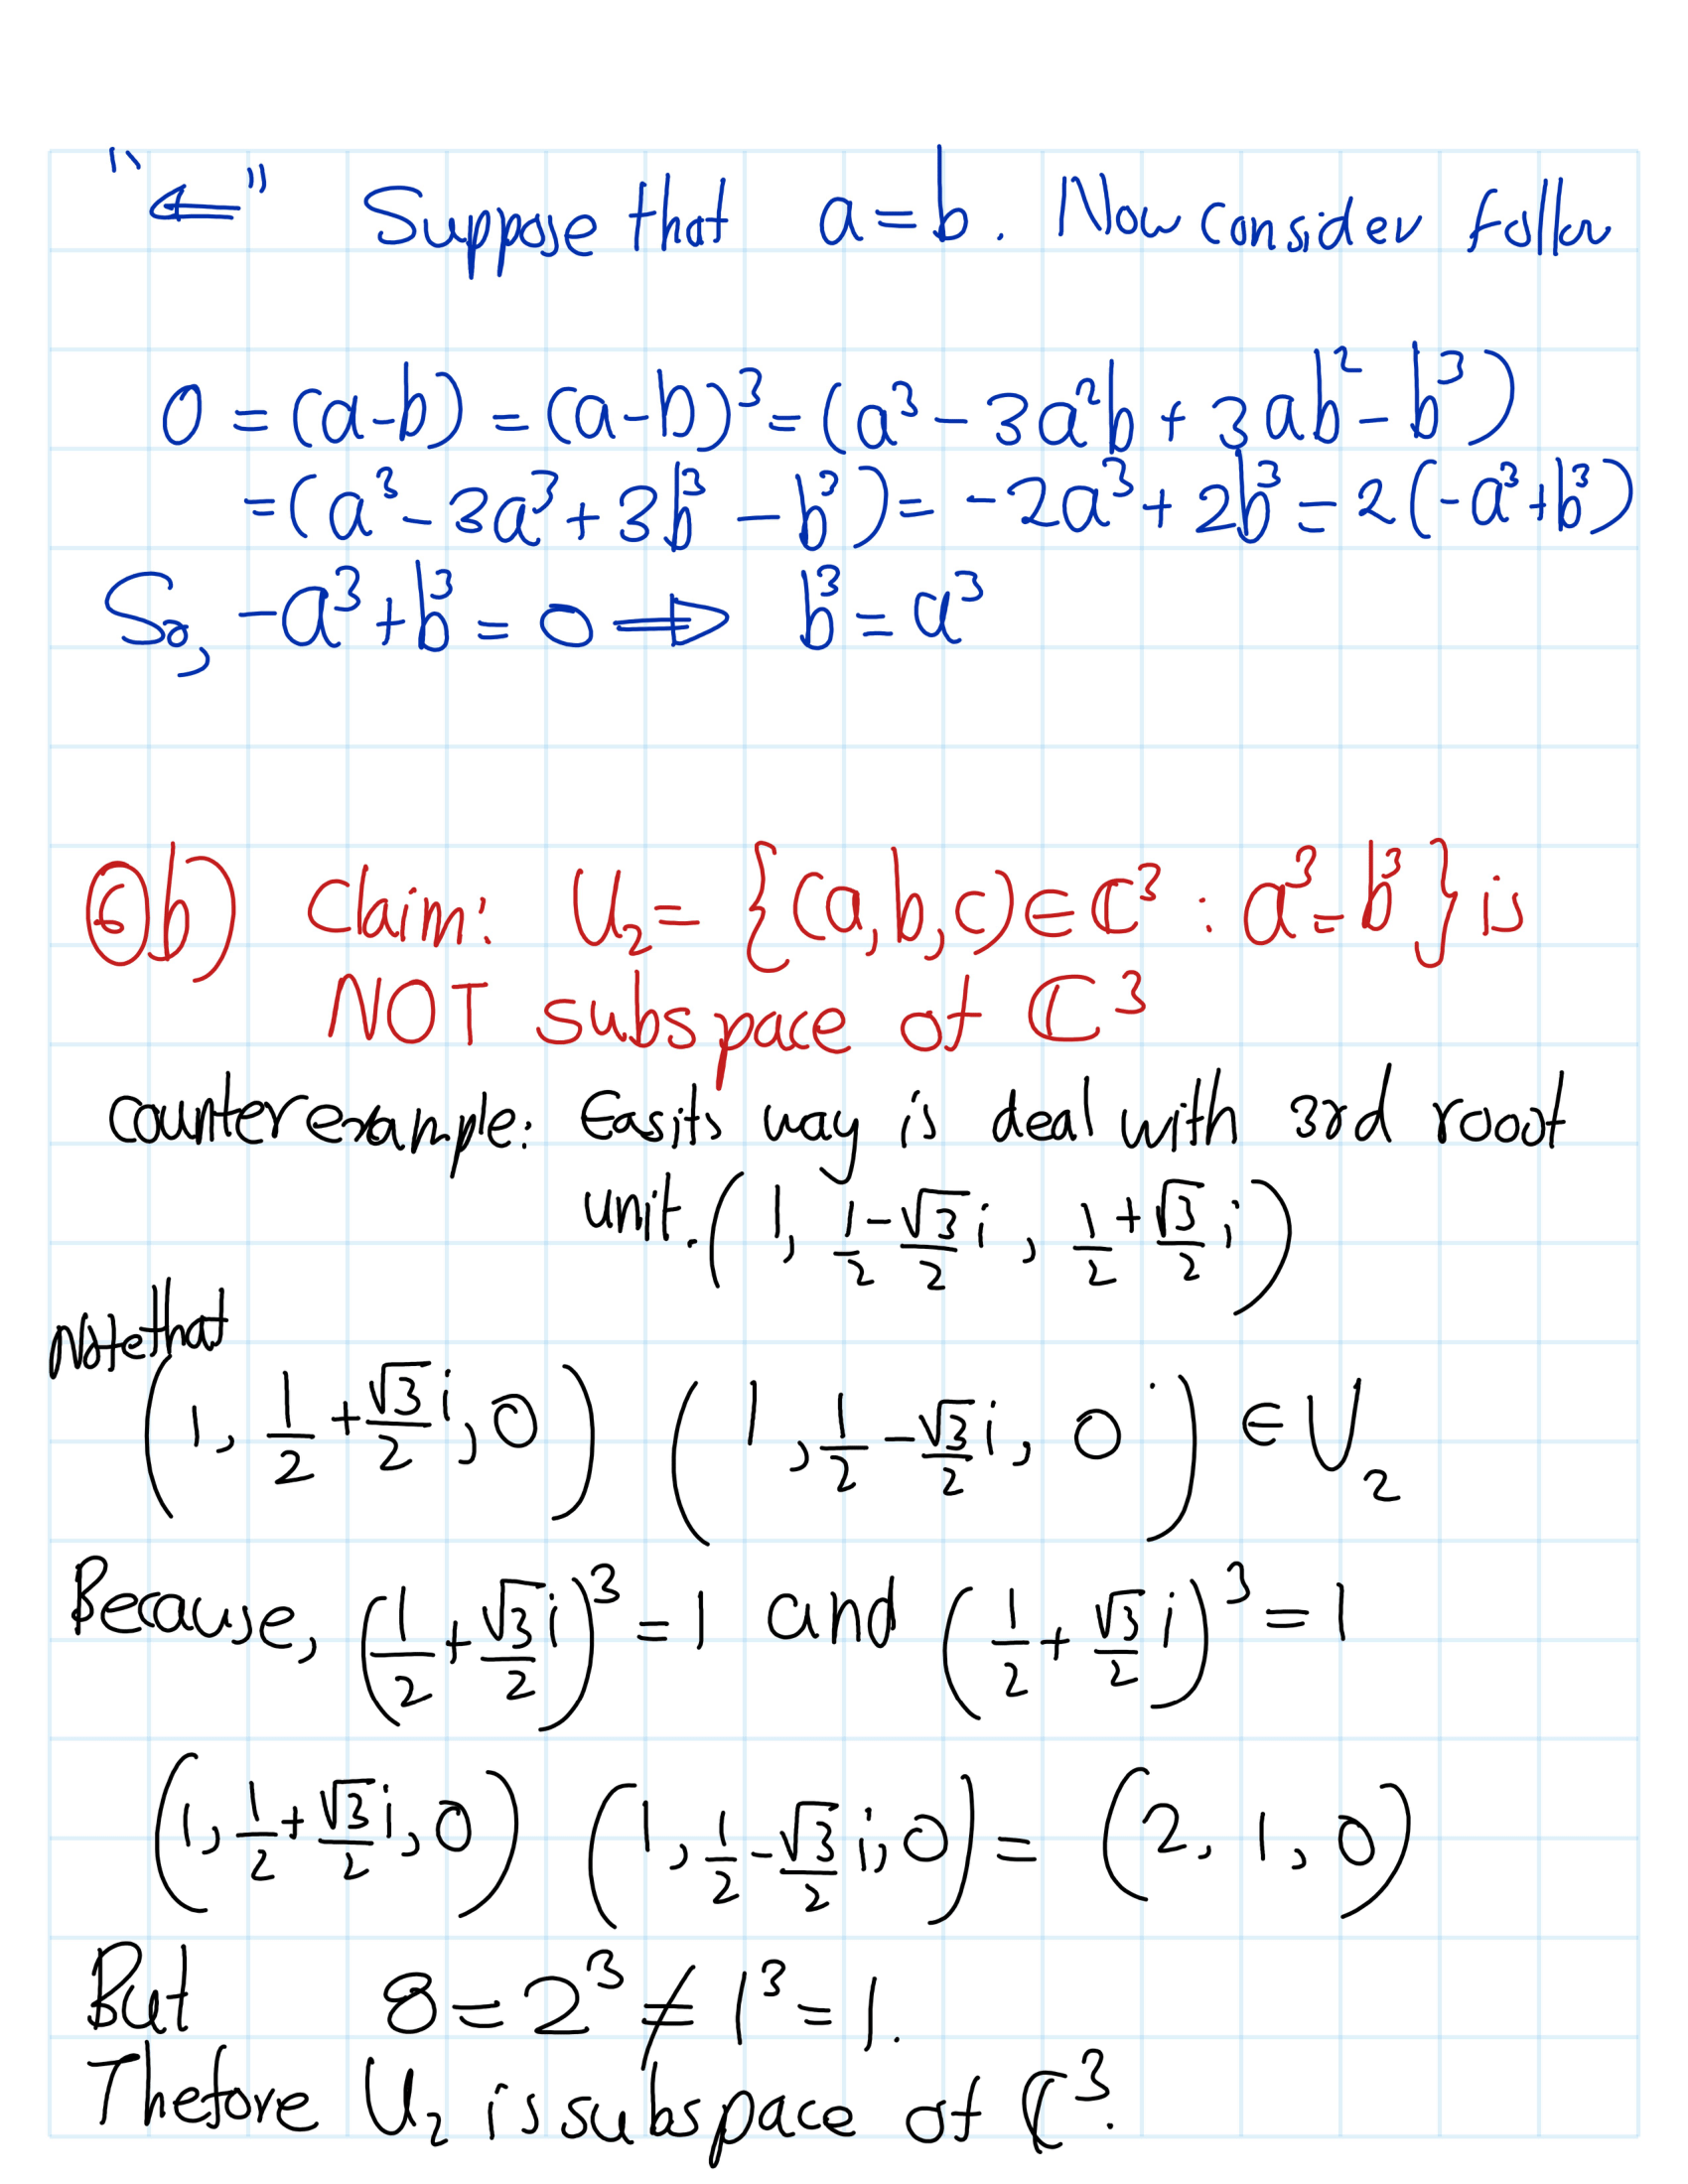 "⇐" Suppose that a=b. Now consider follow
0 = (a-b) = (a-b)³ = (a³ - 3a²b + 3ab² - b³)
= (a³ - 3a³ + 3b³ - b³) = -2a³ + 2b³ = 2(-a³+b³)
So, -a³+b³ = 0 ⟹ b³ = a³
6b) Claim: U₂ = {(a,b,c)∈ℂ³ : a³=b³} is
NOT subspace of ℂ³
counterexample: Easits way is deal with 3rd root
unit. (1, 1/2 - √3/2 i, 1/2 + √3/2 i)
Note that
(1, 1/2 + √3/2 i, 0) (1, 1/2 - √3/2 i, 0) ∈ U₂
Because, (1/2 + √3/2 i)³ = 1 and (1/2 + √3/2 i)³ = 1
(1, 1/2 + √3/2 i, 0) (1, 1/2 - √3/2 i, 0) = (2, 1, 0)
But 8 = 2³ ≠ 1³ = 1.
Thefore U₂ is subspace of ℂ³.